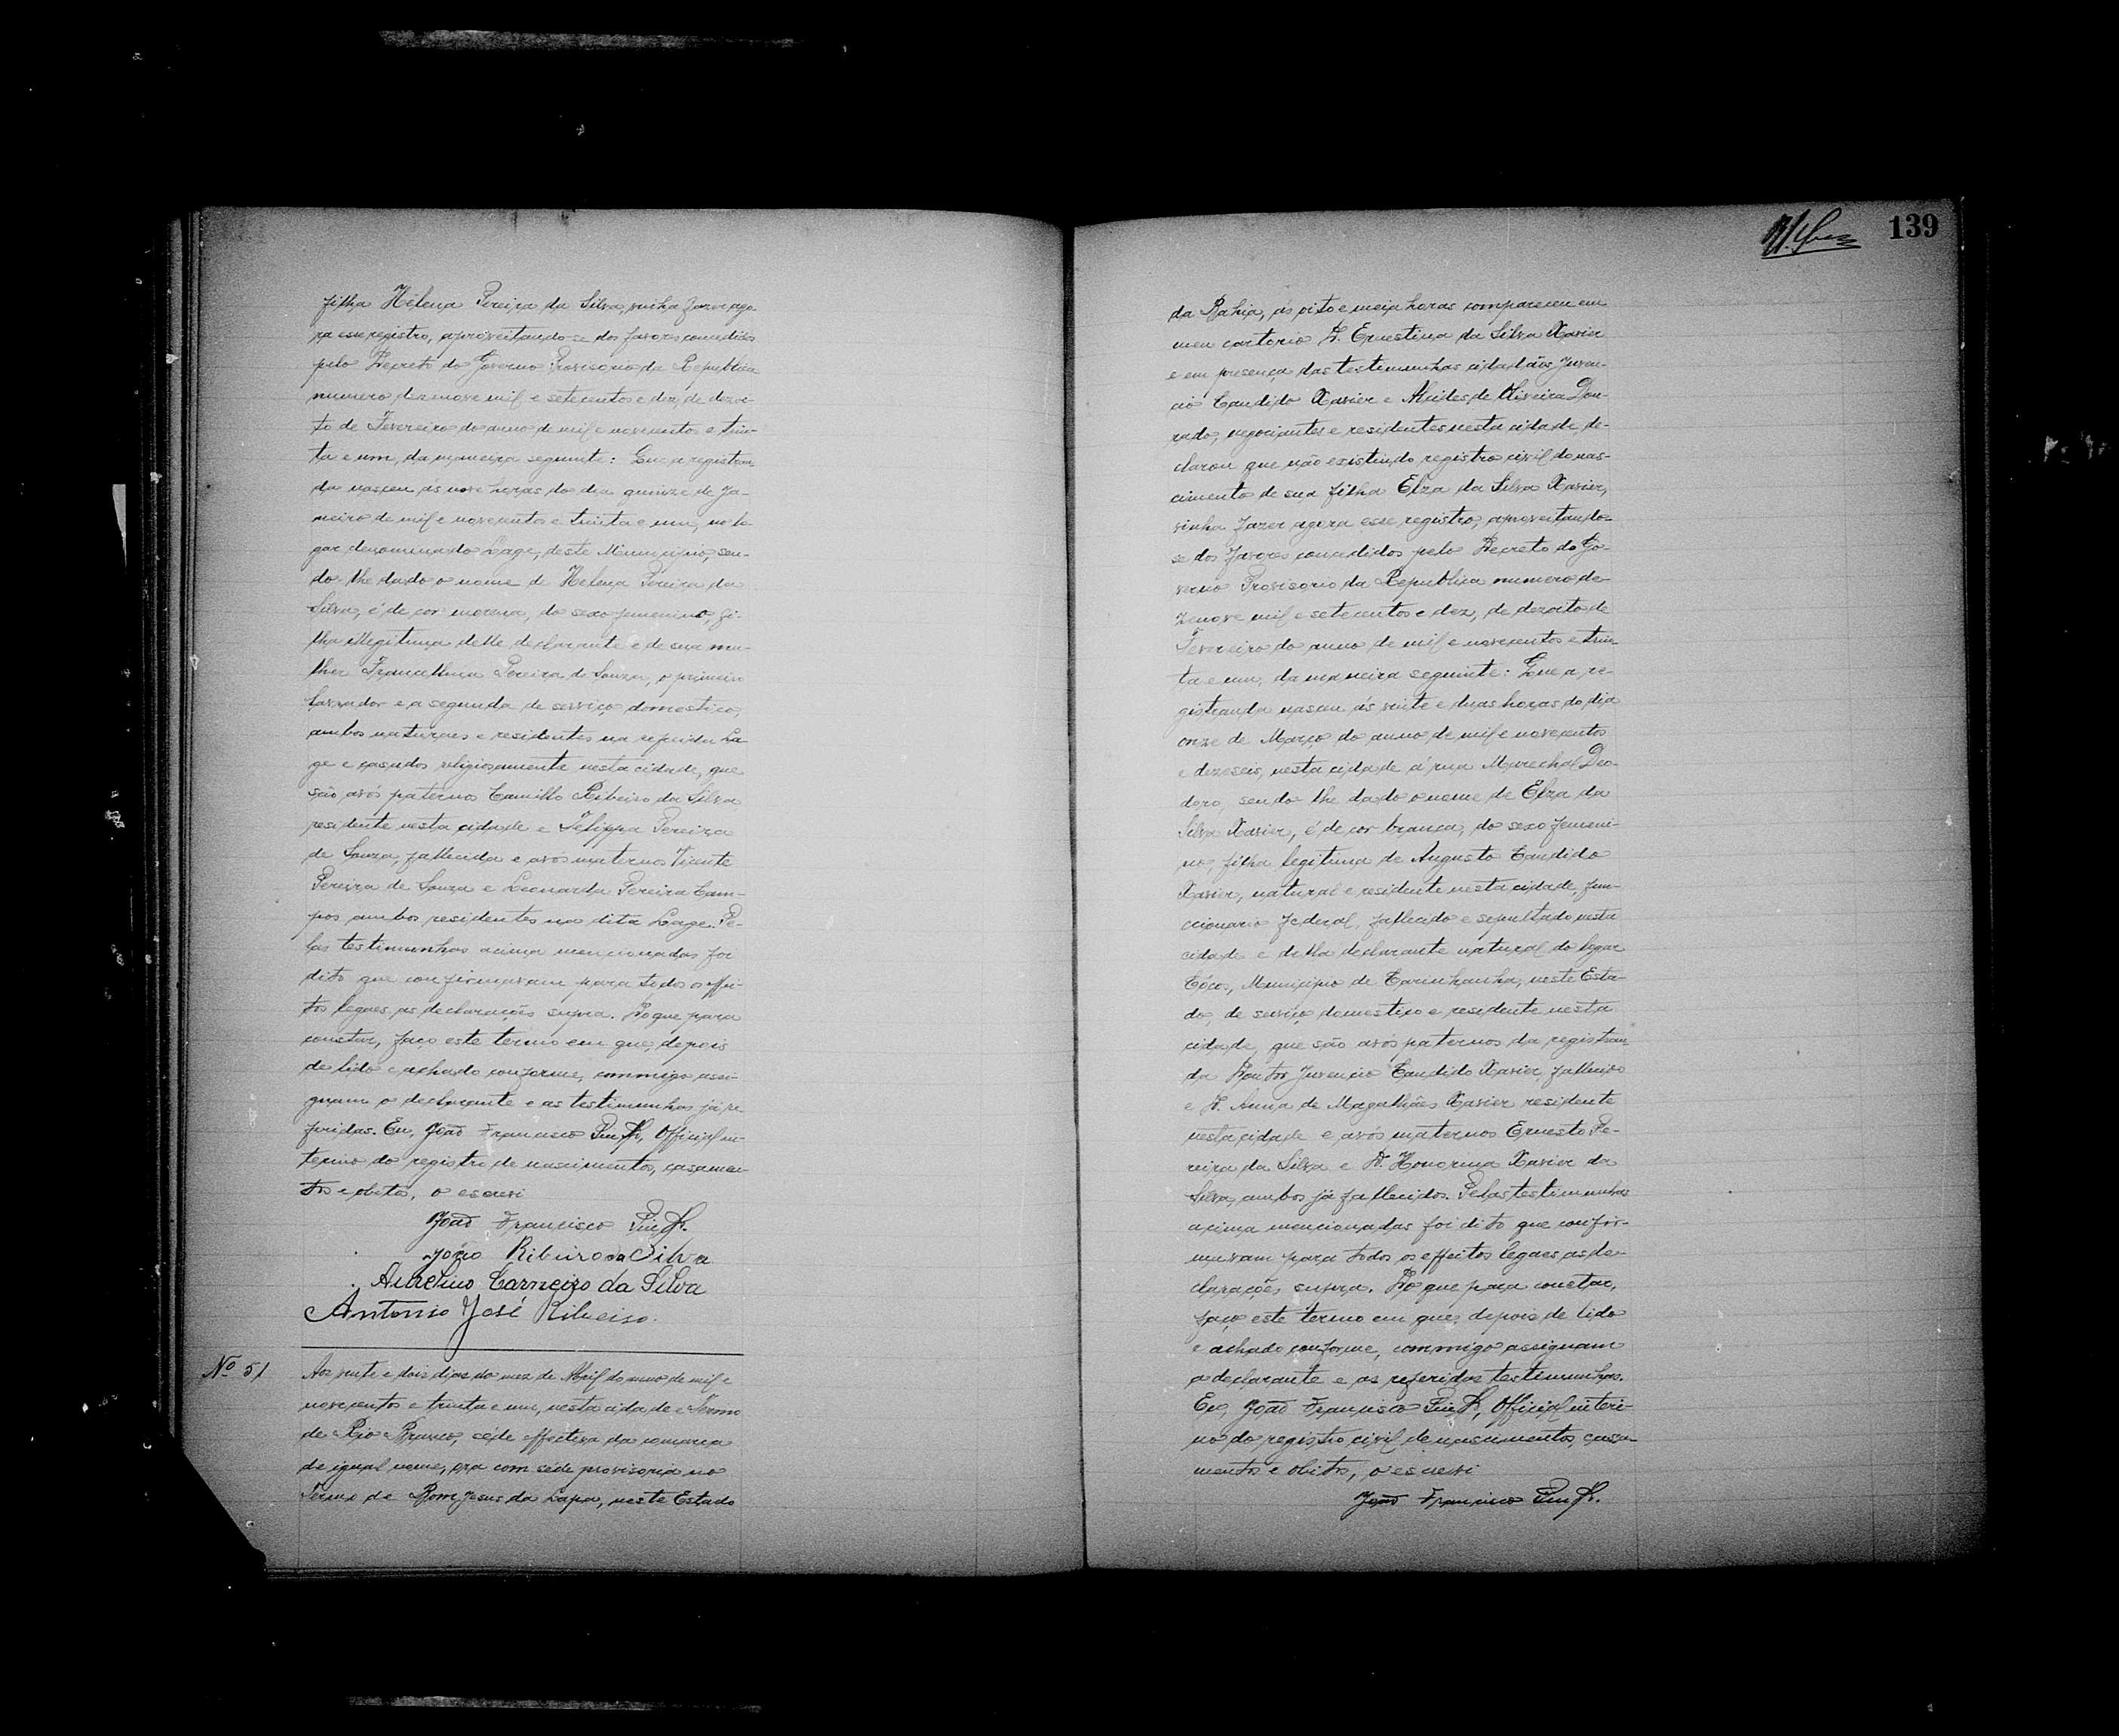 filha Helena Pereira da Silva, vinha fazer ago-
ra esse registro, aproveitando-se dos favores concedidos
pelo Decreto do Governo Provisorio da Republica
numero dezenove mil e setecentos e dez, de dezoi-
to de Fevereiro do anno de mil e novecentos e trin-
ta e um, da maneira seguinte: Que a registran-
da nasceu ás nove horas do dia quinze de Ja-
neiro de mil e novecentos e trinta e um, no lo-
gar denominado Lage, deste Municipio, sen-
do-lhe dado o nome de Helena Pereira da
Silva, é de cor morena, do sexo femenino, fi-
lha illegitima delle declarante e de sua mu-
lher Francellina Pereira de Souza, o primeiro
lavrador e a segunda de serviço domestico,
ambos naturaes e residentes na referida La-
ge e casados religiosamente nesta cidade, que
são avós paternos Camillo Ribeiro da Silva
residente nesta cidade e Felippa Pereira
de Souza, fallecida e avós maternos Vicente
Pereira de Souza e Leonarda Pereira Cam-
pos ambos residentes na dita Lage. Pe-
las testimunhas acima mencionadas foi
dito que confirmavam para todos os effei-
tos legaes as declarações supra. Do que para
constar, faço este termo em que, depois
de lido e achado conforme, commigo assi-
gnam o declarante e as testimunhas já re-
feridas. Eu, João Francisco Official in-
terino do registro de nascimentos, casamen-
tos e obitos, o escrevi
João Francisco
João Ribeiro da Silva
Aurelino Carneiro da Silva
Antonio José Ribeiro.
Nº 51
Aos vinte e dois dias do mez de Abril do anno de mil e
novecentos e trinta e um, nesta cidade e Termo
de Rio Branco, séde effectiva da comarca
de igual nome, ora com séde provisoria no
Termo de Bom Jesus da Lapa, neste Estado
139
da Bahia, ás oito e meia horas compareceu em
meu cartorio D. Ernestina da Silva Xavier
e em presença das testimunhas cidadãos Juven-
cio Candido Xavier e Alcides de Oliveira Dou-
rado, negociantes e residentes nesta cidade, de-
clarou que não existindo registro civil do nas-
cimento de sua filha Elza da Silva Xavier,
vinha fazer agora esse registro, aproveitando-
se dos favores concedidos pelo Decreto do Go-
verno Provisorio da Republica numero de-
zenove mil e setecentos e dez, de dezoito de
Fevereiro do anno de mil e novecentos e trin-
ta e um, da maneira seguinte: Que a re-
gistranda nasceu ás vinte e duas horas do dia
onze de Março do anno de mil e novecentos
e dezeseis, nesta cidade á rua Marechal Deo-
doro, sendo-lhe dado o nome de Elza da
Silva Xavier, é de cor branca, do sexo femeni-
no, filha legitima de Augusto Candido
Xavier, natural e residente nesta cidade, fun-
ccionario federal, fallecido e sepultado nesta
cidade e della declarante natural do logar
Côcos, Municipio de Carinhanha, neste Esta-
do, de serviço domestico e residente nesta
cidade, que são avós paternos da registran-
da Doutor Juvencio Candido Xavier, fallecido
e D. Anna de Magalhães Xavier residente
nesta cidade e avós maternos Ernesto Pe-
reira da Silva e D. Honorina Xavier da
Silva, ambos já fallecidos. Pelas testimunhas
acima mencionadas foi dito que confir-
mavam para todos os effeitos legaes as de-
clarações supra. Do que para constar,
faço este termo em que, depois de lido
e achado conforme, commigo assignam
a declarante e as referidas testimunhas.
Eu, João Francisco Official interi-
no do registro civil de nascimentos, casa-
mentos e obitos, o escrevi
João Francisco